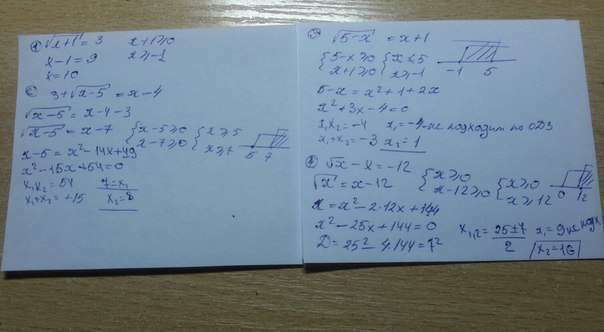 √x+1 = 3 x+1≥0
x-1=9 x≥-1
x=10
3+√x-5 = x-4
√x-5 = x-4-3
√x-5 = x-7 { x-5≥0 { x≥5
x-7≥0 x≥7 5 7
x-5=x²-14x+49
x²-15x+54=0
x₁x₂=54
x₁+x₂=+15
√5-x = x+1
{ 5-x≥0 { x≤5
x+1≥0 x≥-1 -1 5
5-x=x²+1+2x
x²+3x-4=0
x₁x₂=-4 x₁=-4-не подходит по ОДЗ
x₁+x₂=-3 x₂=1
√x-x=-12
√x=x-12 { x≥0 { x≥0
x-12≥0 x≥12 0 12
x=x²-2·12x+144
x²-25x+144=0
D=25²-4·144=7²
x₁,₂=25±7/2 x₁=9 не подх
x₂=16